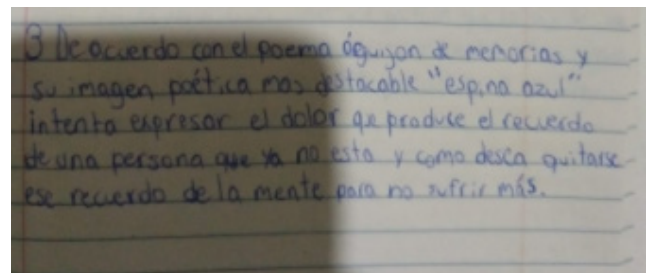 3 De acuerdo con el poema águijon de memorias y
su imagen poética mas destacable "espina azul"
intenta expresar el dolor qe produce el recuerdo
de una persona que ya no esta y como desea quitarse
ese recuerdo de la mente para no sufrir más.